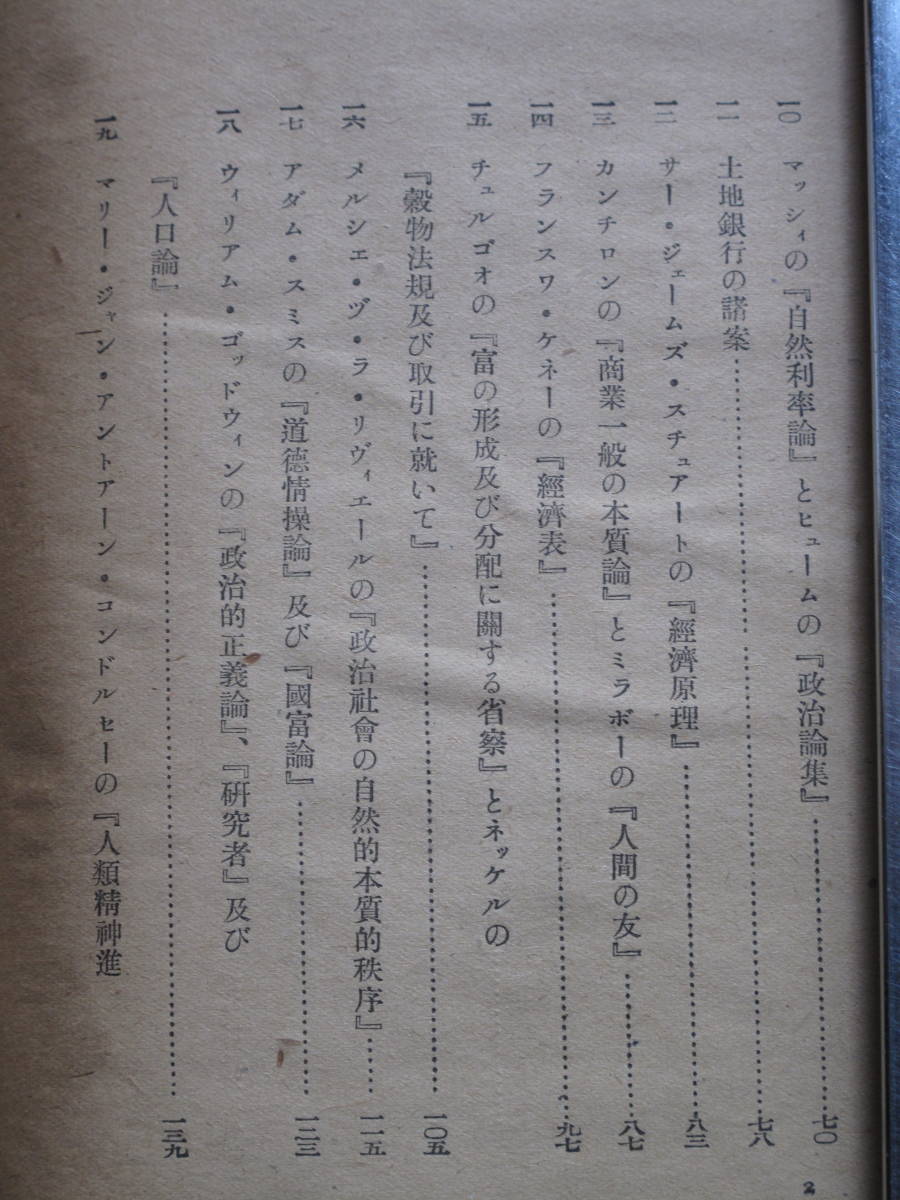 一〇 マッシィの『自然利率論』とヒュームの『政治論集』……七〇
一一 土地銀行の諸案……七八
一二 サー・ジェームズ・スチュアートの『經濟原理』……八三
一三 カンチロンの『商業一般の本質論』とミラボーの『人間の友』……八七
一四 フランスワ・ケネーの『經濟表』……九七
一五 チュルゴオの『富の形成及び分配に關する省察』とネッケルの
『穀物法規及び取引に就いて』……一〇五
一六 メルシェ・ヅ・ラ・リヴィエールの『政治社會の自然的本質的秩序』……一一五
一七 アダム・スミスの『道德情操論』及び『國富論』……一二三
一八 ウィリアム・ゴッドウィンの『政治的正義論』、『研究者』及び
『人口論』……一三九
一九 マリー・ジャン・アントアーン・コンドルセーの『人類精神進
2